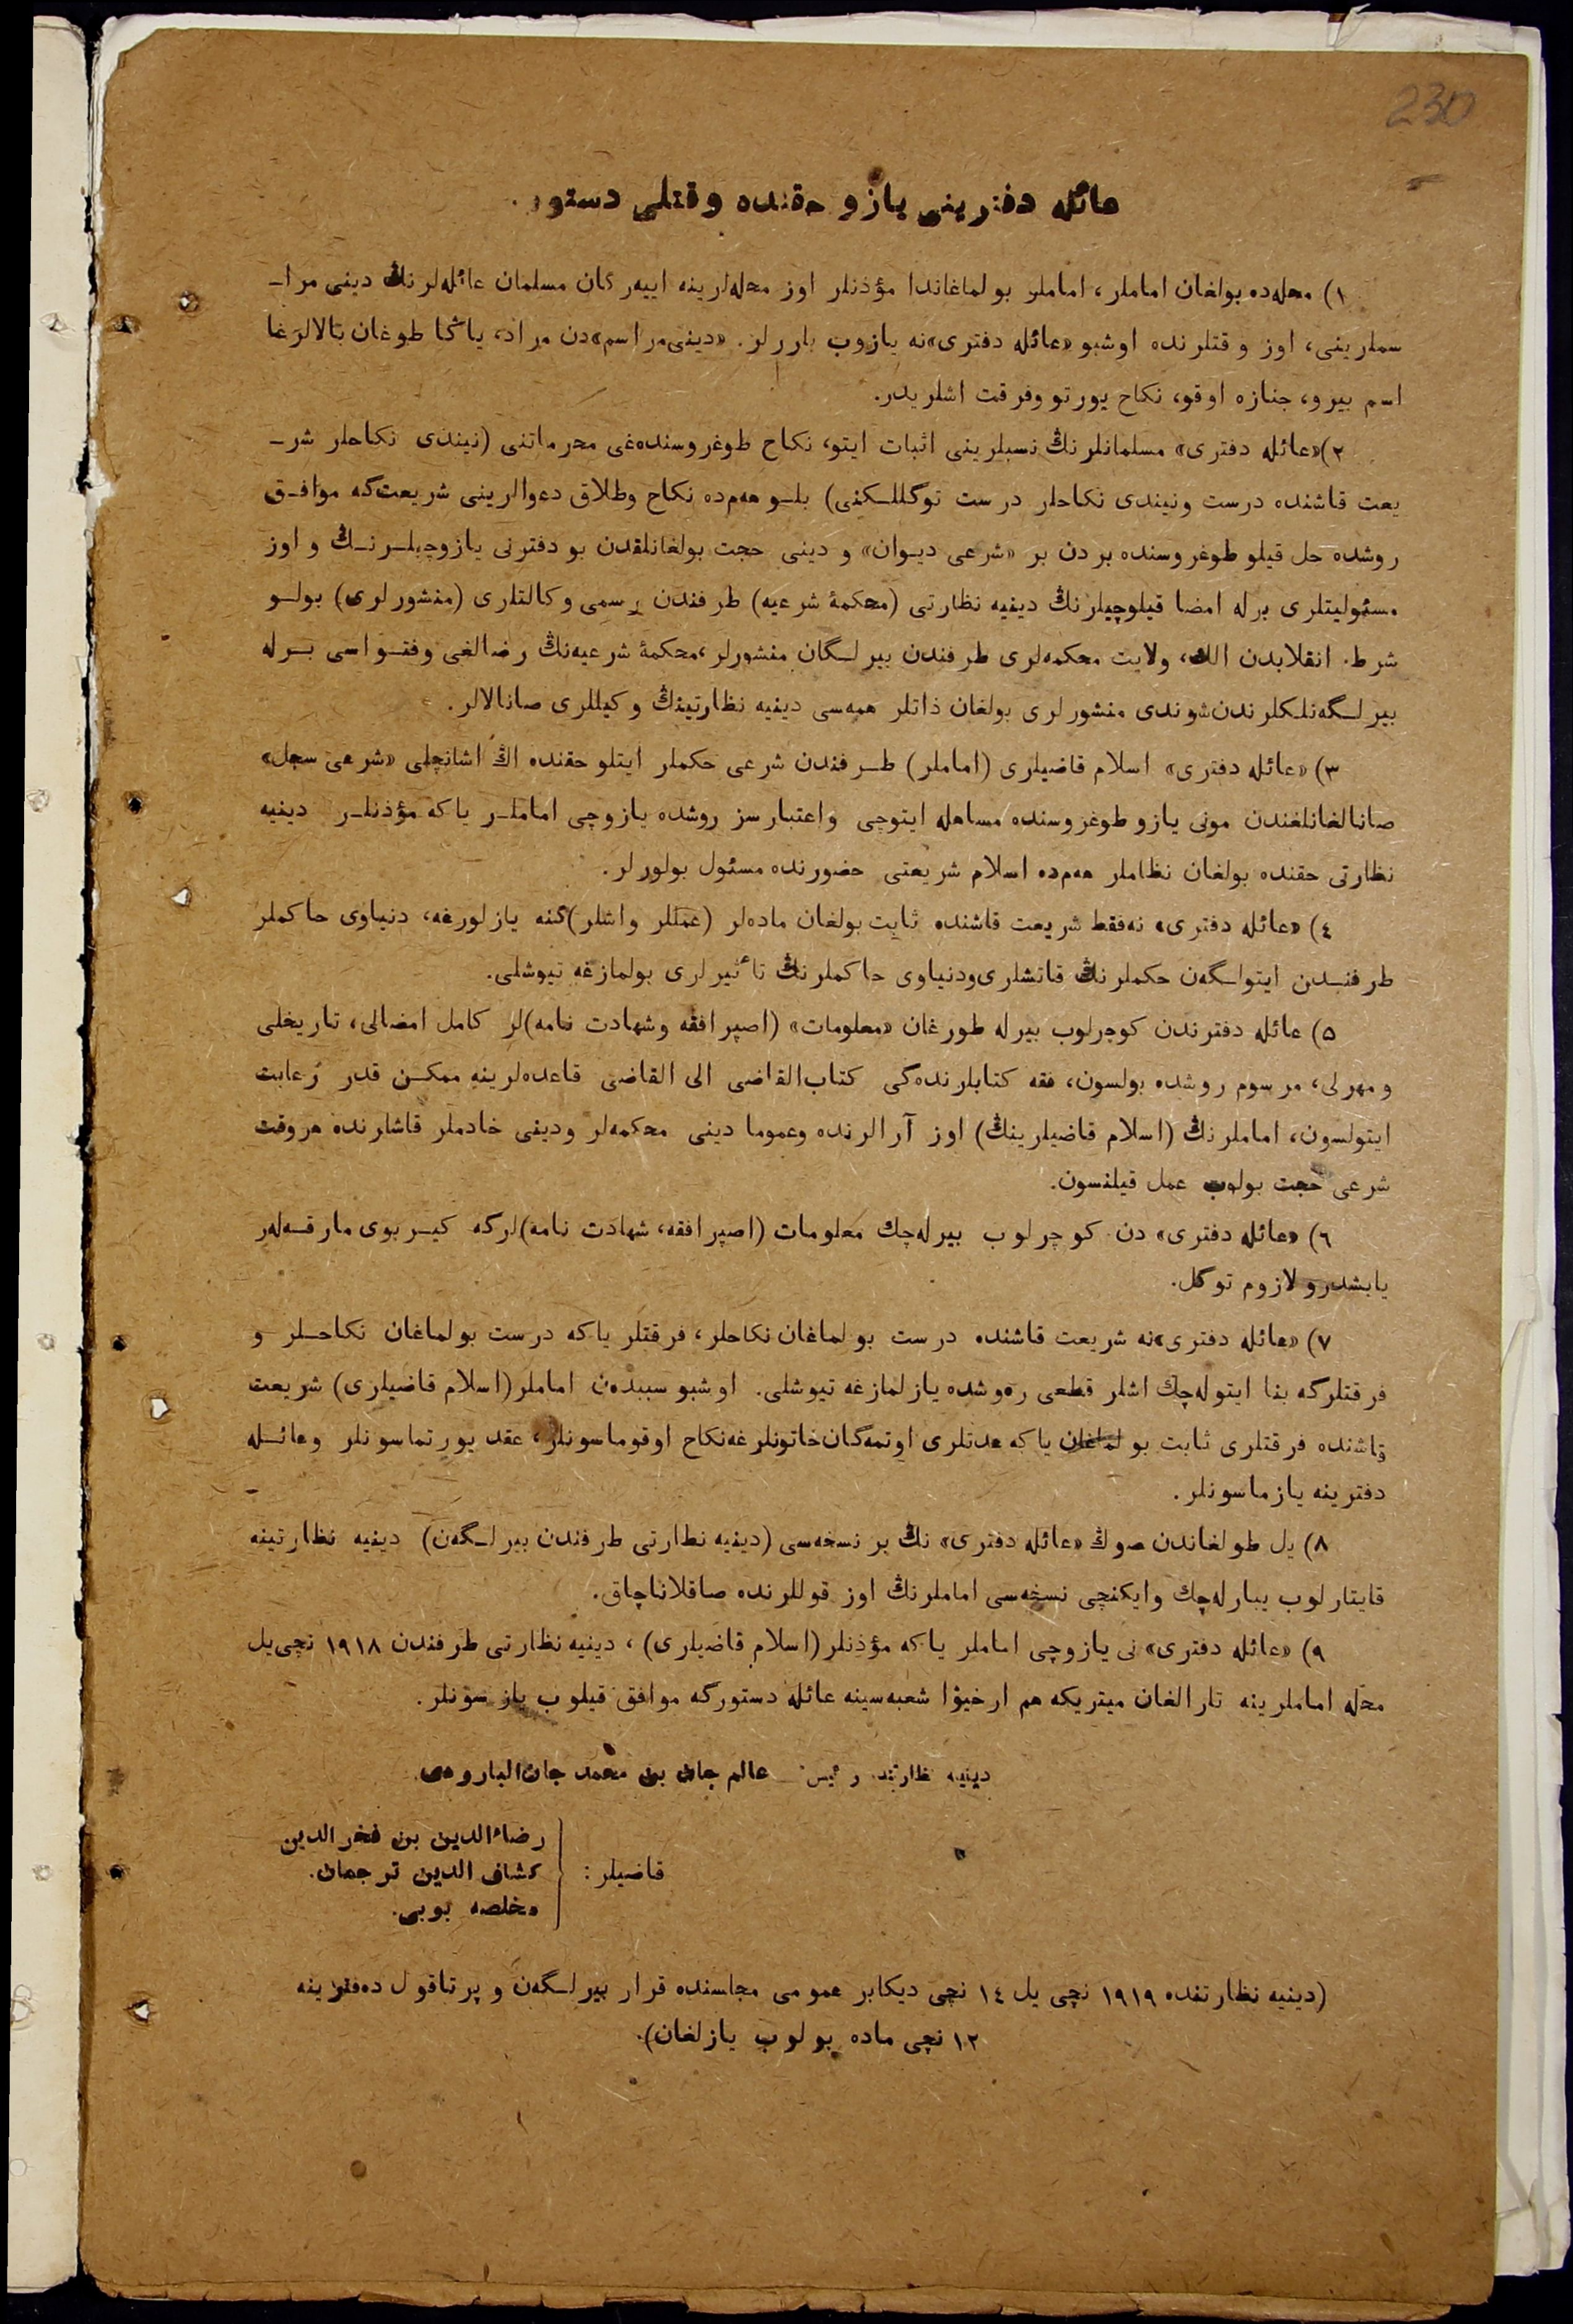 230
عائله دفترینی یازو حقنده وقتلی دستور.
۱) محله‌ده بولغان اماملر، اماملر بولماغاندا مؤذنلر اوز محله‌لرینه اییه‌رگان مسلمان عائله‌لرنڭ دینی مرا-
سملرینی، اوز وقتلرنده اوشبو «عائله دفتری»نه یازوب بارر‌لر. «دینی مراسم»دن مراد، یاڭا طوغان بالالرغا
اسم بیرو، جنازه اوقو، نکاح یورتو وفرقت اشلریدر.
۲) «عائله دفتری» مسلمانلرنڭ نسبلرینی اثبات ایتو، نکاح طوغروسنده‌غی محرماتنی (نیندی نکاحلر شر-
یعت قاشنده درست ونیندی نکاحلر درست توگللـکنی) بلـو هم‌ده نکاح وطلاق دعوالرینی شریعت‌که موافـق
روشده حل قیلو طوغروسنده بردن بر «شرعی دیـوان» و دینی حجت بولغانلقدن بو دفترنی یازوچیلـرنـڭ و اوز
مسئولیتلری برله امضا قیلوچیلرنڭ دینیه نظارتی (محکمۀ شرعیه) طرفندن رسمی وکالتلری (منشورلری) بولـو
شرط. انقلابدن الك، ولایت محکمه‌لری طرفندن بیرلـگان منشورلر، محکمۀ شرعیه‌نڭ رضالغی وفتـواسی بـرله
بیرلـگه‌نلـکلرندن شوندی منشورلری بولغان ذاتلر همه‌سی دینیه نظارتینڭ وکیللری صانالالر.
۳) «عائله دفتری» اسلام قاضیلری (اماملر) طـرفندن شرعی حکملر ایتلو حقنده اڭ اشانچلی «شرعی سجل»
صانالغانلغندن مونی یازو طوغروسنده مساهله ایتوچی واعتبارسز روشده یازوچی اماملـر یاکه مؤذنلـر دینیه
نظارتی حقنده بولغان نظاملر هم‌ده اسلام شریعتی حضورنده مسئول بولورلر.
٤) «عائله دفتری» نه‌فقط شریعت قاشنده ثابت بولغان ماده‌لر (عمللر واشلر)گنه یازلورغه، دنیاوی حاکملر
طرفنـدن ایتولـگه‌ن حکملرنڭ قاتشلری ودنیاوی حاکملرنڭ تأثیرلری بولمازغه تیوشلی.
۵) عائله دفترندن کوچرلوب بیرله طورغان «معلومات» (اصپرافقه وشهادت نامه)لر کامل امضالی، تاریخلی
ومهرلی، مرسوم روشده بولسون، فقه کتابلرنده‌گی کتاب‌القاضی الی القاضی قاعده‌لرینه ممکـن قدر رعایت
ایتولسون، اماملرنڭ (اسلام قاضیلرینڭ) اوز آرالرنده وعموما دینی محکمه‌لر ودینی خادملر قاشلرنده هروقت
شرعی حجت بولوب عمل قیلنسون.
٦) «عائله دفتری» دن کوچرلوب بیرله‌چك معلومات (اصپرافقه، شهادت نامه)لرگه گیـربوی مارقـه‌لر
یابشدرو لازوم توگل.
۷) «عائله دفتری»نه شریعت قاشنده درست بولماغان نکاحلر، فرقتلر یاکه درست بولماغان نکاحـلر و
فرقتلرگه بنا ایتوله‌چك اشلر قطعی ره‌وشده یازلمازغه تیوشلی. اوشبو سببدن اماملر (اسلام قاضیلری) شریعت
قاشنده فرقتلری ثابت بولماغان یاکه عدتلری اوتمه‌گان خاتونلرغه نکاح اوقوماسونلر، عقد یورتماسونلر وعائـله
دفترینه یازماسونلر.
۸) یل طولغاندن صوڭ «عائله دفتری» نڭ بر نسخه‌سی (دینیه نظارتی طرفندن بیرلـگه‌ن) دینیه نظارتینه
قایتارلوب یبارله‌چك وایکنچی نسخه‌سی اماملرنڭ اوز قوللرنده صاقلاناچاق.
۹) «عائله دفتری» نی یازوچی اماملر یاکه مؤذنلر (اسلام قاضیلری)، دینیه نظارتی طرفندن ۱۹۱۸ نچی یل
محله اماملرینه تارالغان میتریکه هم ارخیوا شعبه‌سینه عائله دستورگه موافق قیلوب یازسونلر.
دینیه نظارتنڭ رئیس عالم جان بن محمد جان البارودی.
قاضیلر:
رضاءالدین بن فخرالدین
کشاف الدین ترجمان.
مخلصه بوبی.
(دینیه نظارتنده ۱۹۱۹ نچی یل ۱٤ نچی دیکابر عمومی مجلسنده قرار بیرلـگه‌ن و پرتاقول ده‌فترینه
۱۲ نچی ماده بولوب یازلغان).